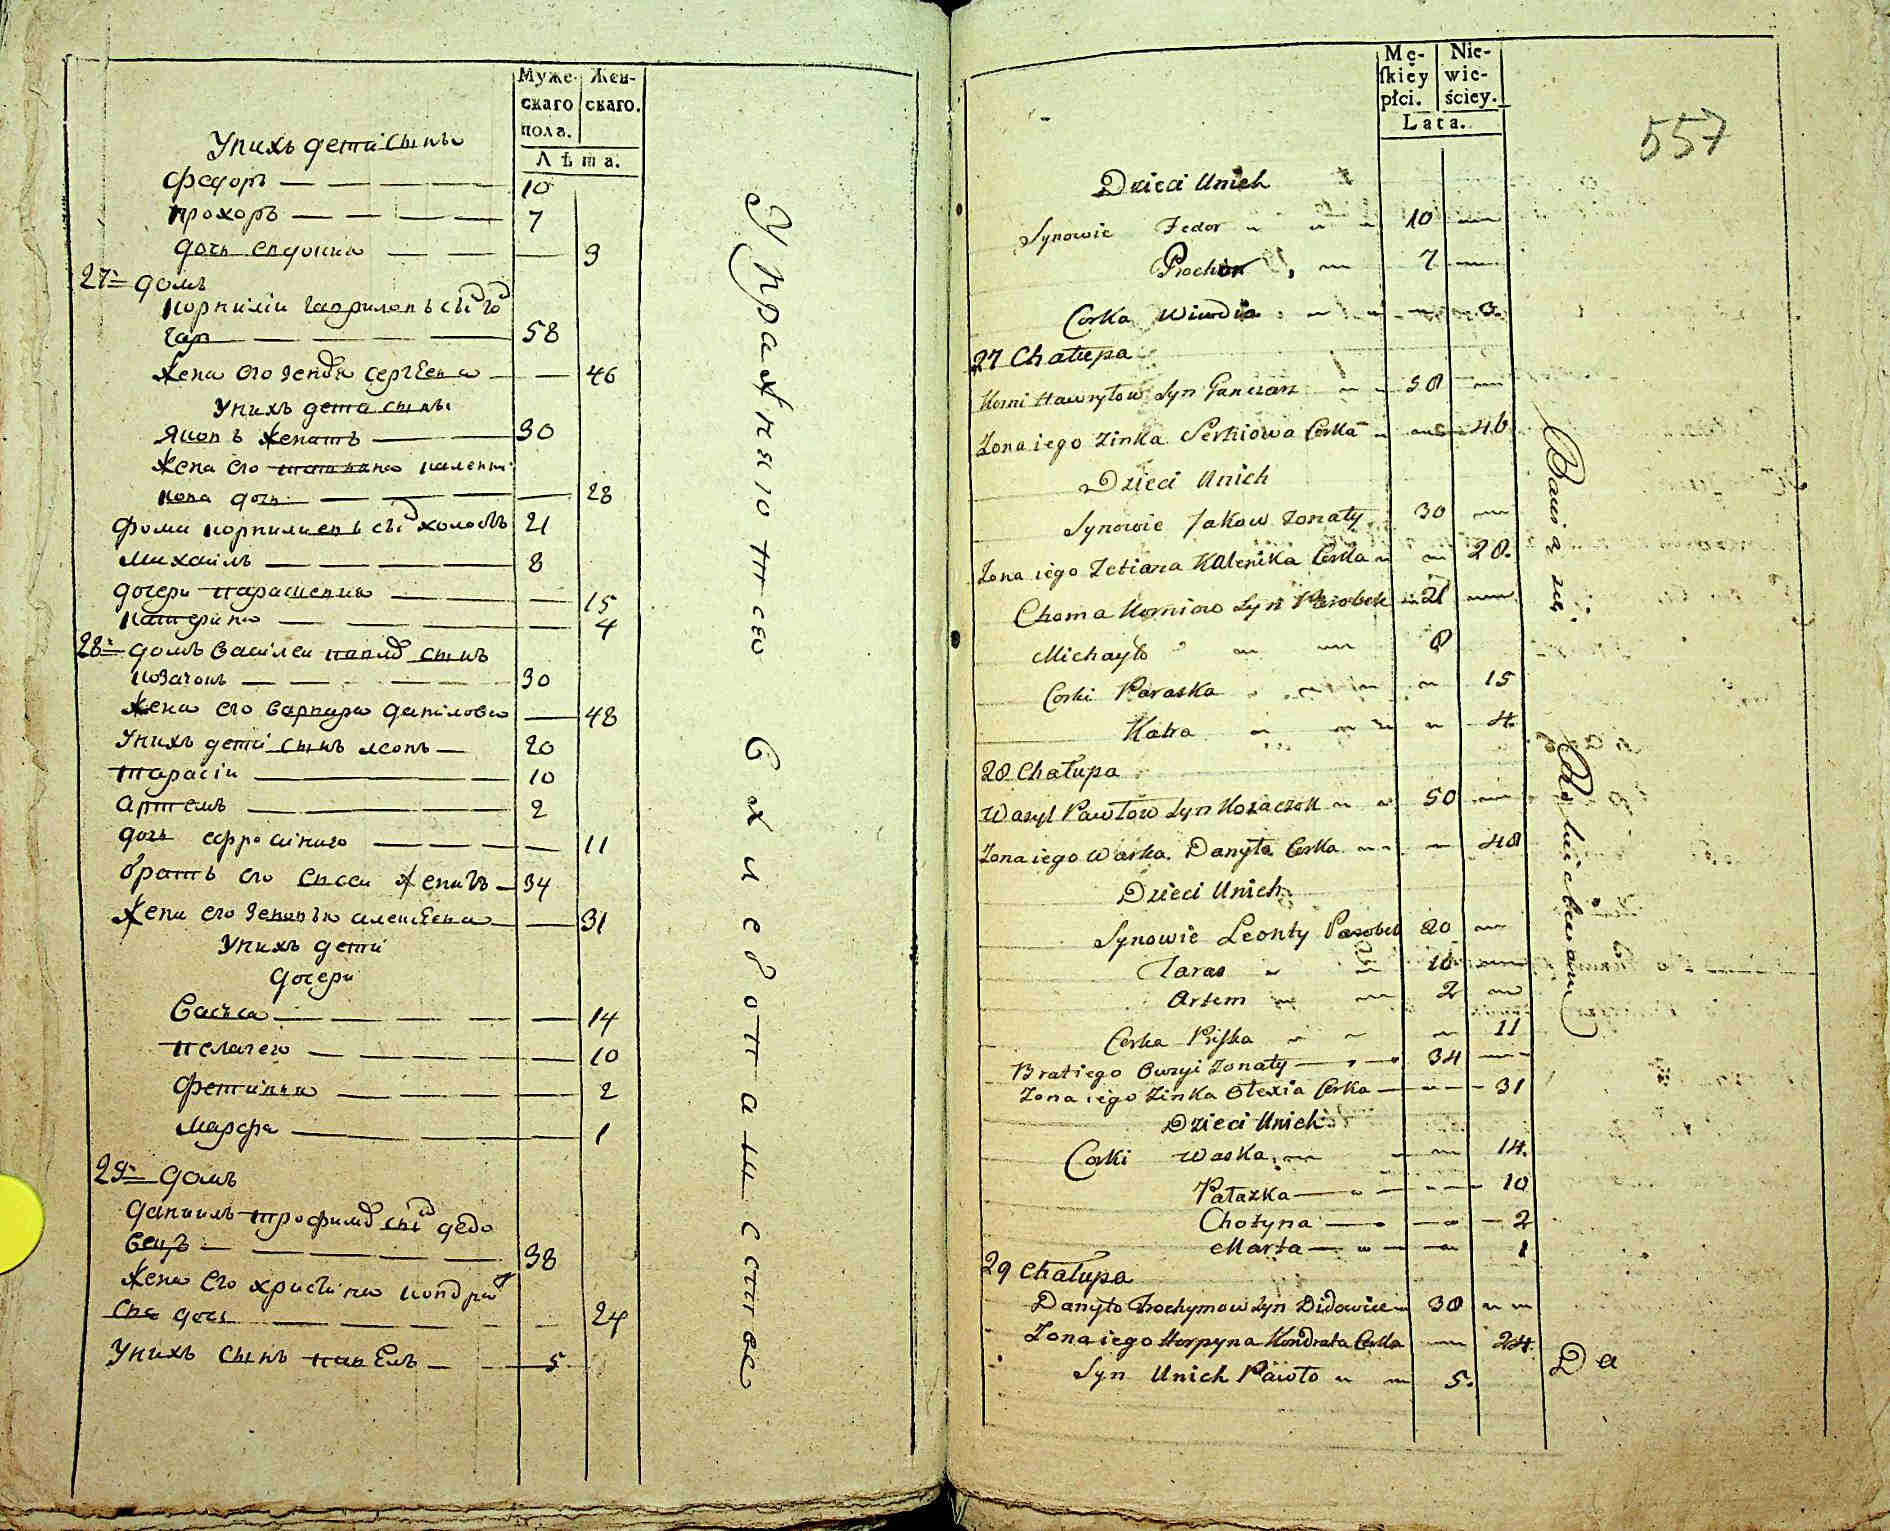 Муже-
скаго
пола.
Жен-
скаго.
Лѣта.
Унихъ дети сынъ
Федоръ — 10
Прохоръ — 7
дочь евдокиа — 3
27: домъ
корнилiи гавриловъ сынъ гон
чар — 58
жена его зенка сергѣева — 46
Унихъ дети сынъ
Яковъ женатъ — 30
жена его татиана калени
кова дочь — 28
фома корнилиевъ сынъ холостъ 21
Михаилъ — 8
дочери парасковиа — 15
Катерина — 4
28: домъ Василеи павловъ сынъ
козачокъ — 30
жена его варвара данилова — 48
Унихъ дети сынъ леонъ — 20
тарасiи — 10
артемъ — 2
дочь ефросиниа — 11
братъ его евсеи женатъ — 34
жена его зеновiа алексѣева — 31
Унихъ дети
дочери
Васса — 14
пелагеа — 10
фетиниа — 2
Марфа — 1
29: домъ
даниилъ трофимовъ сынъ дедо
вецъ — 38
жена его христина кондрат
ева дочь — 24
Унихъ сынъ павелъ — 5
Упражняются в хлебопашестве
Mę-
skiey
płci.
Nie-
wie-
ściey.
Lata.
557
Dzieci Unich
Synowie Fedor 10
Prochor 7
Corka Wiwdia 3.
27 Chałupa
Korni Hawryłow Syn Ganczarz 58
Zona iego Zinka Serhiowa Corka 46
Dzieci Unich
Synowie Jakow Zonaty 30
Zona iego Tetiana Kalenika Corka 28.
Choma Korniow Syn Parobek 21
Michayło 8
Corki Paraska 15
Katra 4.
28 Chałupa
Wasyl Pawłow Syn Kozaczok 50
Zona iego Warka Danyła Corka 48
Dzieci Unich
Synowie Leonty Parobek 20
Taras 10
Artem 2
Corka Priska 11
Brat iego Owsyi Zonaty 34
Zona iego Zinka Olexia Corka 31
Dzieci Unich
Corki Waska 14.
Pałazka 10
Chotyna 2
Marta 1
29 Chałupa
Danyło Trochymow Syn Didowiec 38
Zona iego Horpyna Kondrata Corka 24.
Syn Unich Pawło 5.
Bawią się
Rolnictwem
Da